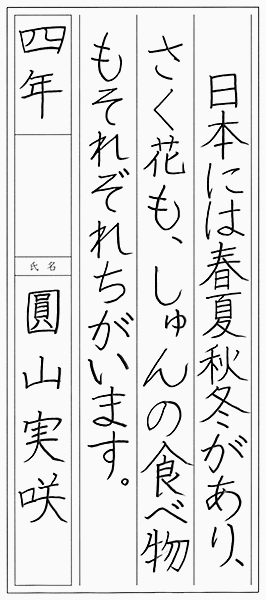 日本には春夏秋冬があり、
さく花も、しゅんの食べ物
もそれぞれちがいます。
四年
氏名
圓山実咲